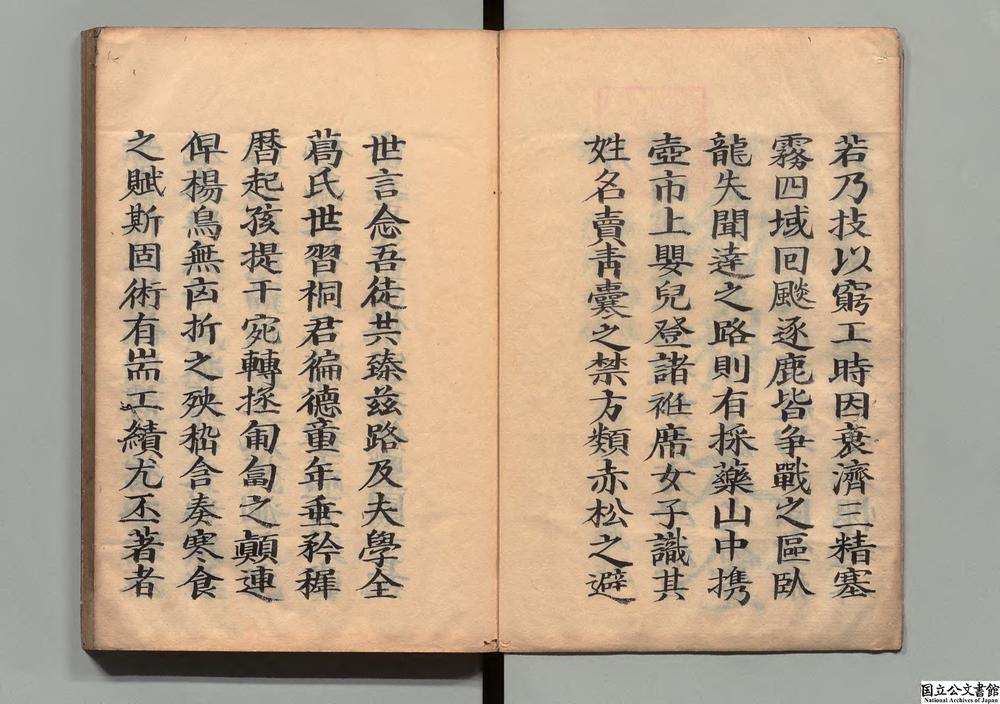 若乃技以窮工時因衰濟三精塞
霧四域回飈逐鹿皆争戰之區臥
龍失聞達之路則有採藥山中携
壺市上嬰兒登諸袵席女子識其
姓名賣青囊之禁方類赤松之避
世言念吾徒共臻兹路及夫學全
葛氏世習桐君徧德童年垂矜穉
暦起孩提于宛轉拯匍匐之顛連
俾楊烏無凶折之殃嵇含奏寒食
之賦斯固術有耑工績尤丕著者
国立公文書館
National Archives of Japan